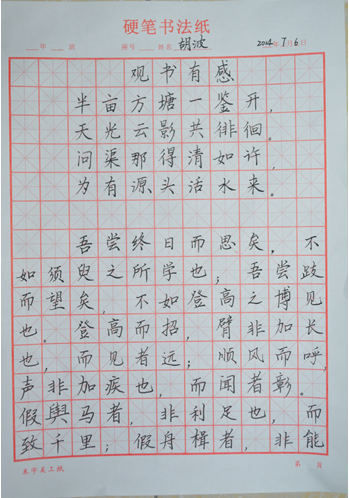 硬笔书法纸
年 班 编号 姓名 胡波 2004年7月6日
观书有感
半亩方塘一鉴开,
天光云影共徘徊。
问渠那得清如许,
为有源头活水来。
吾尝终日而思矣,不
如须臾之所学也;吾尝跂
而望矣,不如登高之博见
也。登高而招,臂非加长
也,而见者远;顺风而呼,
声非加疾也,而闻者彰。
假舆马者,非利足也,而
致千里;假舟楫者,非能
第 页